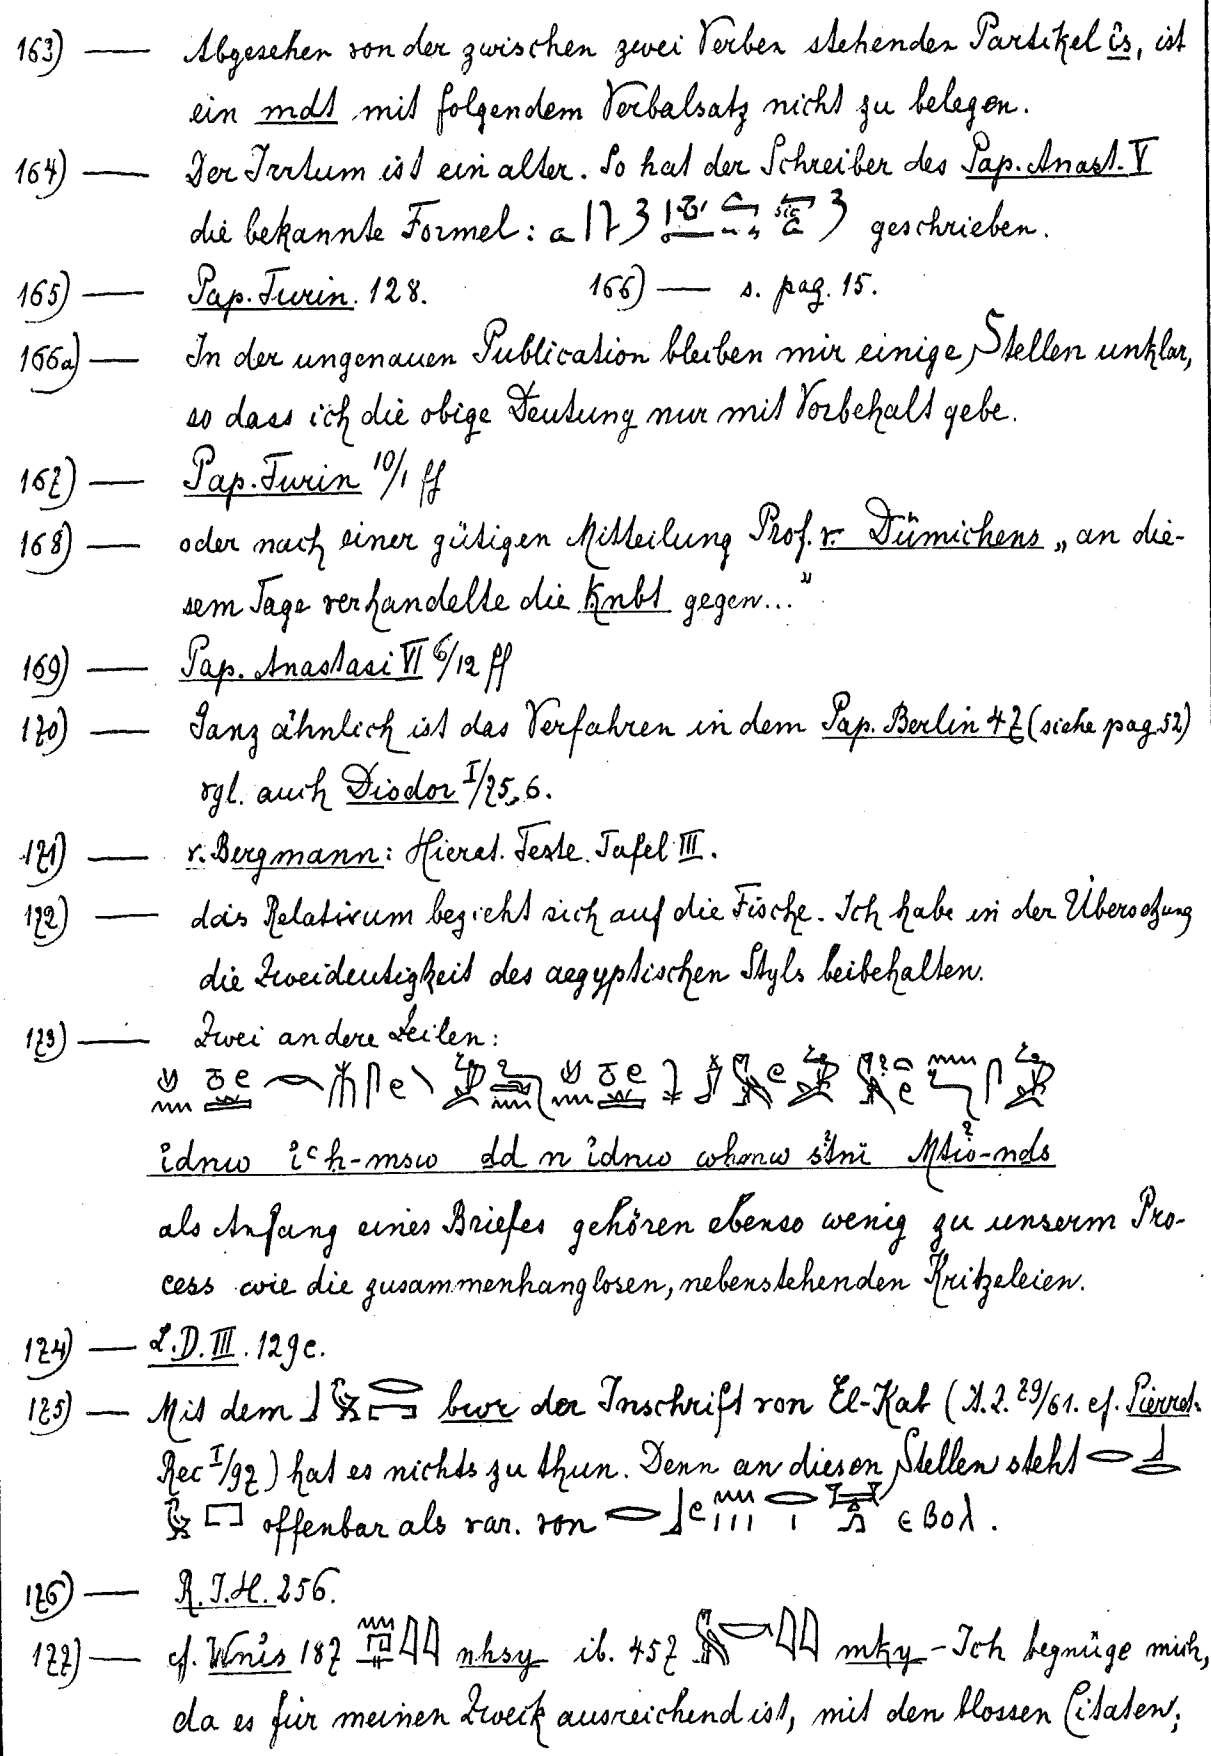 163) — Abgesehen von der zwischen zwei Verben stehenden Partikel îs, ist
ein mdt mit folgendem Verbalsatz nicht zu belegen.
164) — Der Irrtum ist ein alter. So hat der Schreiber des Pap. Anast. V
die bekannte Formel: sic geschrieben.
165) — Pap. Turin. 128. 166) — s. pag. 15.
166a) — In der ungenauen Publication bleiben mir einige Stellen unklar,
so dass ich die obige Deutung nur mit Vorbehalt gebe.
167) — Pap. Turin 10/1 ff
168) — oder nach einer gütigen Mitteilung Prof. v. Dümichens „an die-
sem Tage verhandelte die Knbt gegen..."
169) — Pap. Anastasi VI 6/12 ff
170) — Ganz ähnlich ist das Verfahren in dem Pap. Berlin 47 (siehe pag. 52)
vgl. auch Diodor I/75, 6.
171) — v. Bergmann: Hierat. Texte. Tafel III.
172) — das Relativum bezieht sich auf die Fische. Ich habe in der Übersetzung
die Zweideutigkeit des aegyptischen Styls beibehalten.
173) — Zwei andere Zeilen:
idnw iʿh-msw dd n idnw
als Anfang eines Briefes gehören ebenso wenig zu unserm Pro-
cess wie die zusammenhanglosen, nebenstehenden Kritzeleien.
174) — L.D. III. 129c.
175) — Mit dem bwr der Inschrift von El-Kab (A.Z. 79/61. cf. Pierret.
Rec I/97) hat es nichts zu thun. Denn an diesen Stellen steht
offenbar als var. von ⲉⲃⲟⲗ.
176) — R.I.H. 256.
177) — cf. Wnis 187 nhsy ib. 457 mky – Ich begnüge mich,
da es für meinen Zweck ausreichend ist, mit den blossen Citaten;